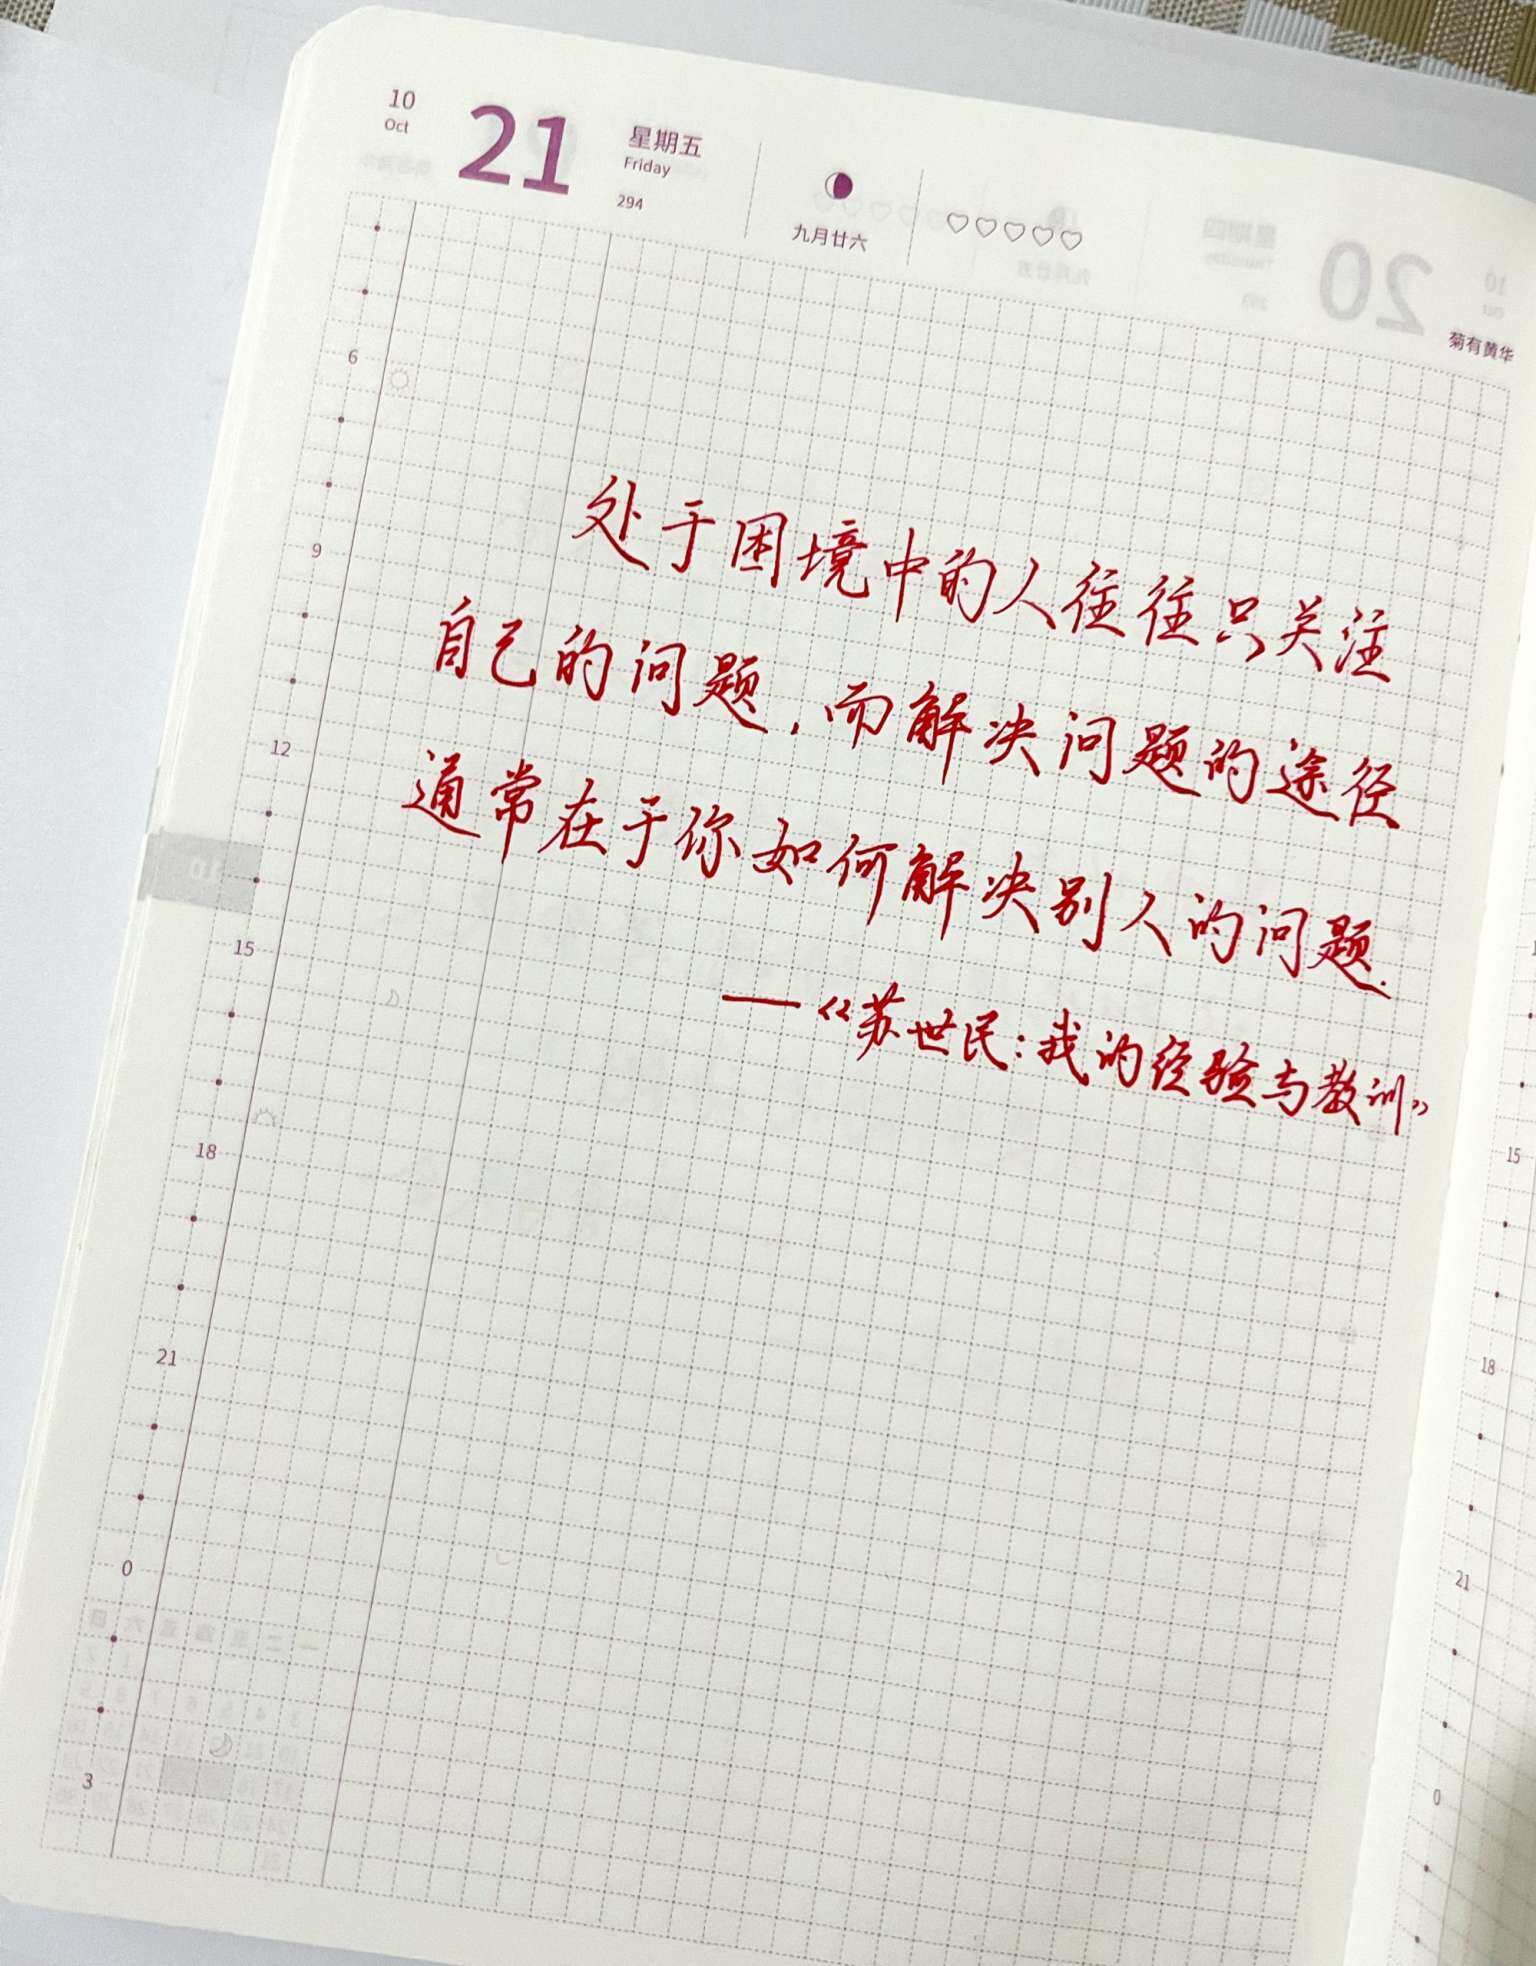 10
Oct
21
星期五
Friday
294
九月廿六
菊有黄华
20
6
9
12
15
18
21
0
3
处于困境中的人往往只关注
自己的问题,而解决问题的途径
通常在于你如何解决别人的问题.
——《苏世民:我的经验与教训》
15
18
21
0